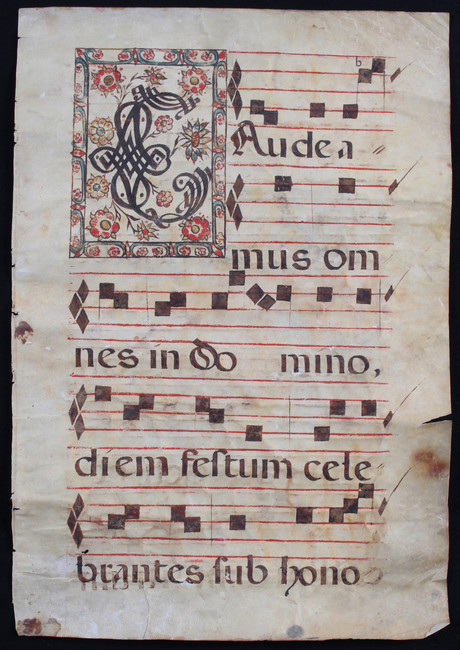 GAudea=
mus om
nes in Do mino,
diem feſtum cele=
brantes ſub hono